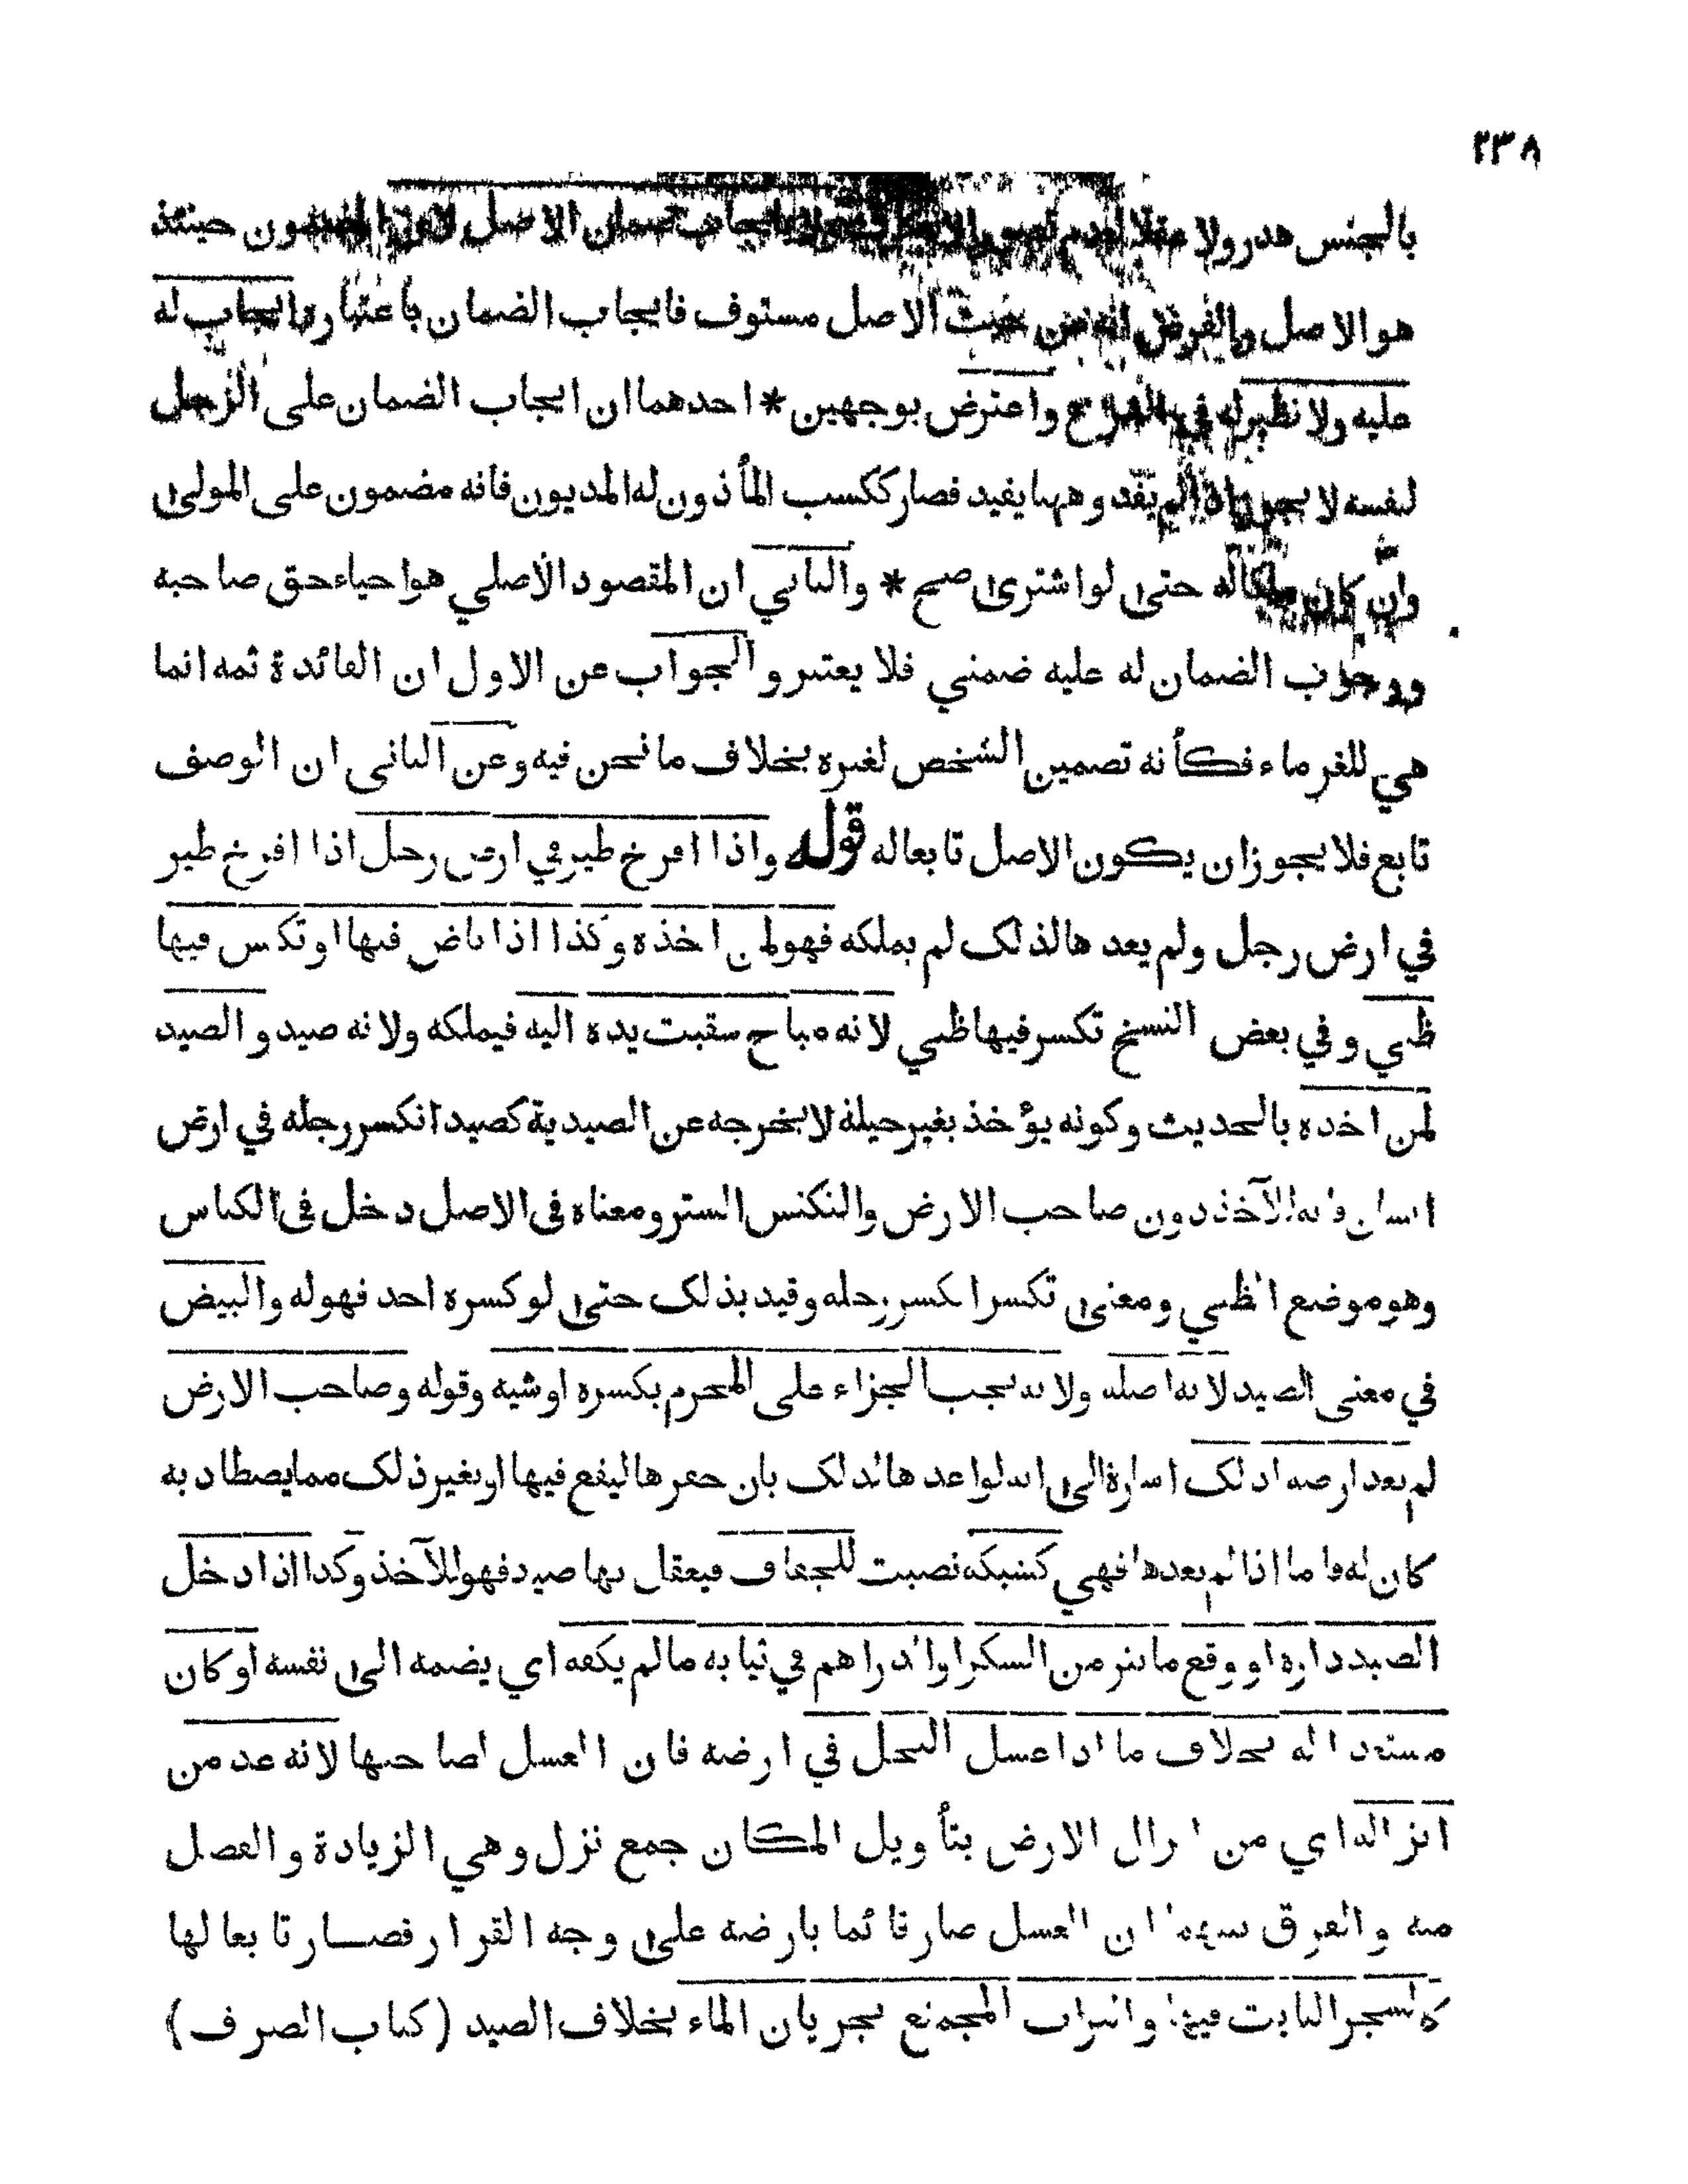 ٢٣٨
بالجنس هدر ولا عقلا لعدم تصور الاصل لان المضمون حينئذ
هو الاصل والفرض انه من حيث الاصل مستوف فايجاب الضمان باعتباره ايجاب له
عليه ولا نظير له في الشرع واعترض بوجهين * احدهما ان ايجاب الضمان على الرجل
لنفسه لا يجوز اذا لم يفد وههنا يفيد فصار ككسب المأذون له المديون فانه مضمون على المولى
وان كان ملكا له حتى لو اشترى صح * والثاني ان المقصود الأصلي هو احياء حق صاحبه
ووجوب الضمان له عليه ضمني فلا يعتبر والجواب عن الاول ان الفائدة ثمه انما
هي للغرماء فكأنه تضمين الشخص لغيره بخلاف ما نحن فيه وعن الثاني ان الوصف
تابع فلا يجوز ان يكون الاصل تابعا له قوله واذا افرخ طير في ارض رجل اذا افرخ طير
في ارض رجل ولم يعد هالذلك لم يملكه فهو لمن اخذه وكذا اذا باض فيها او تكنس فيها
ظبي وفي بعض النسخ تكسر فيها ظبي لانه مباح سقبت يده اليه فيملكه ولانه صيد والصيد
لمن اخذه بالحديث وكونه يؤخذ بغير حيلة لا يخرجه عن الصيدية كصيد انكسر رجله في ارض
انسان فانه للآخذ دون صاحب الارض والتكنس الستر ومعناه فى الاصل دخل فى الكناس
وهو موضع الظبي ومعنى تكسر انكسر رجله وقيد بذلك حتى لو كسره احد فهو له والبيض
في معنى الصيد لانه اصله ولانه يجب الجزاء على المحرم بكسره او شيه وقوله وصاحب الارض
لم يعد ارضه لذلك اشارة الى انه لو اعدها لذلك بان حفرها ليقع فيها او بغير ذلك مما يصطاد به
كان له فاما اذا لم يعدها فهي كشبكه نصبت للجفاف فيعقل بها صيد فهو للآخذ وكذا اذا دخل
الصيد داره او وقع ما نثر من السكر او الدراهم في ثيابه ما لم يكفه اي يضمه الى نفسه او كان
مستعدا له بخلاف ما اذا عسل النحل في ارضه فان العسل لصاحبها لانه عد من
انزاله اي من انزال الارض بتأويل المكان جمع نزل وهي الزيادة والفضل
منه والفرق بينهما ان العسل صار قائما بارضه على وجه القرار فصار تابعا لها
كالشجر النابت فيها والتراب المجتمع بجريان الماء بخلاف الصيد (كتاب الصرف)